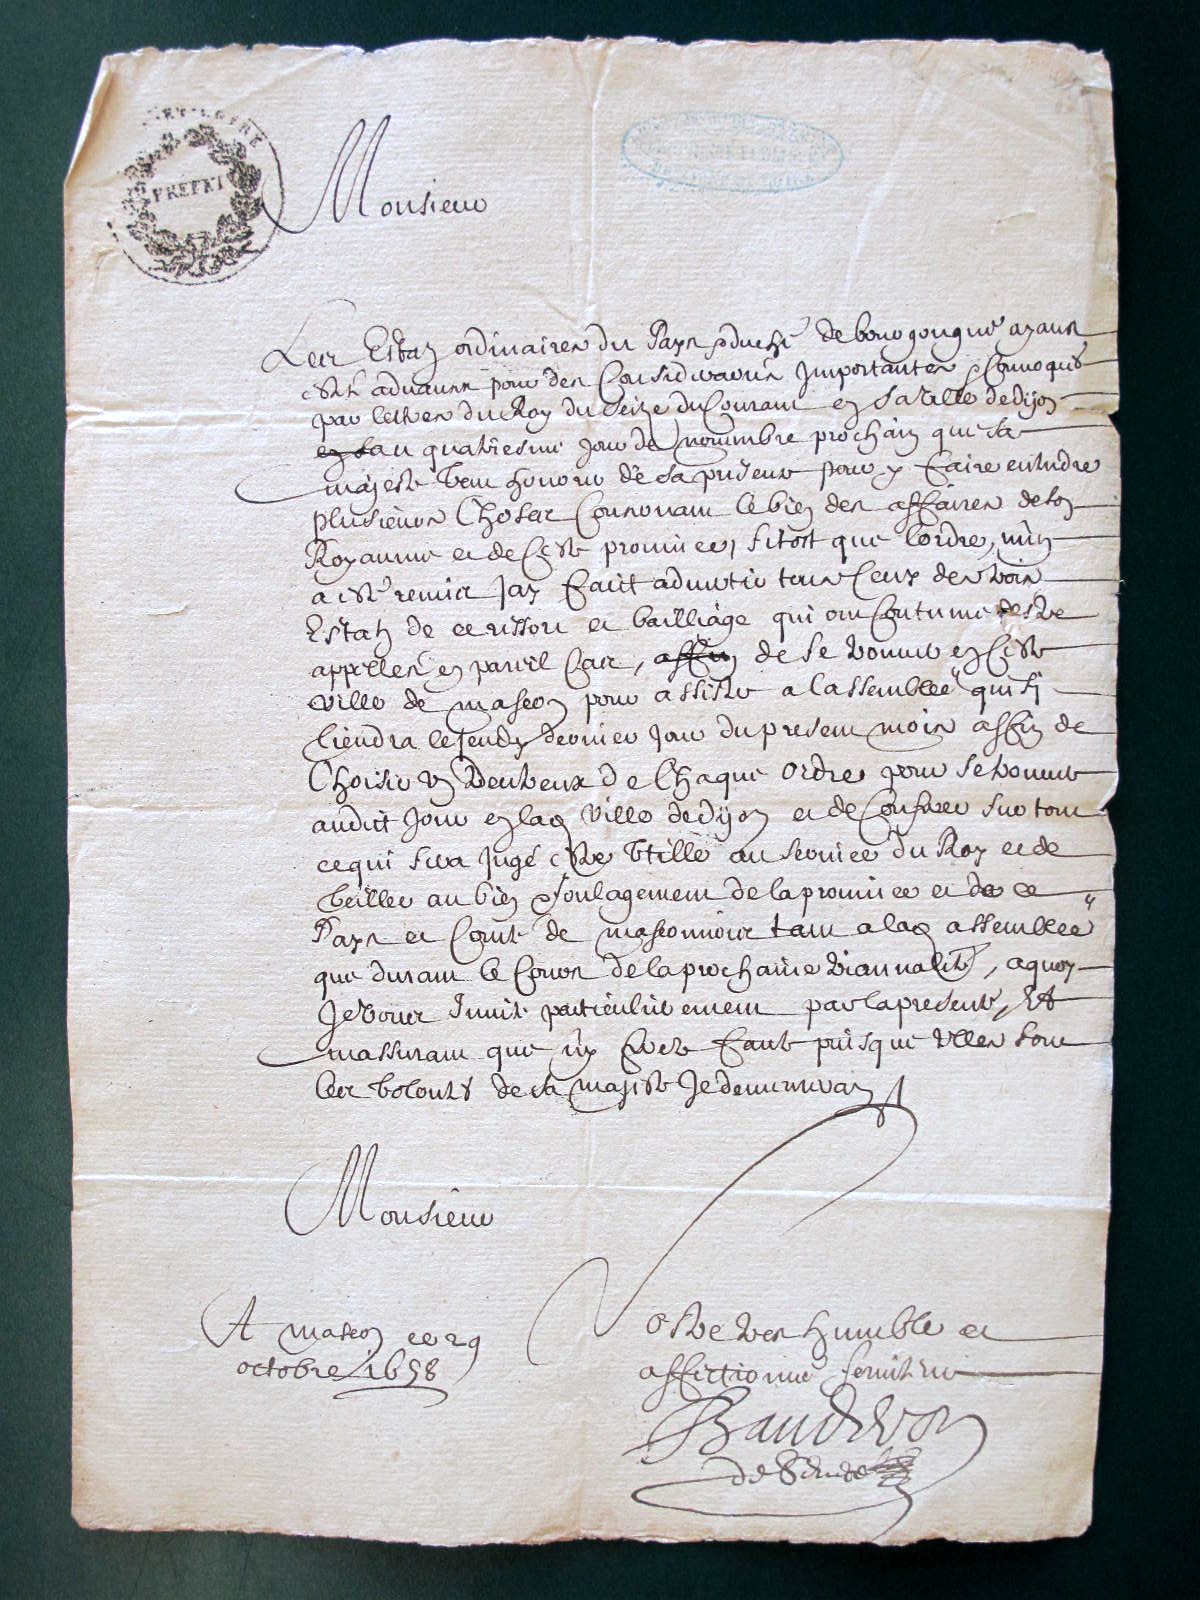 PREFET
Monsieur
Les Estatz ordinaires du Pays & duché de bourgongne ayant
esté advancés pour des Considerations Importantes & Convoqués
par lettres du Roy du Seize du Courant en sa ville de dijon
en sau quatriesme jour de novembre prochain que sa
majesté veut honorer de sa presence pour y faire entendre
plusieurs Choses Concernant le bien des affaires de son
Royaume et de Ceste province, sitost que l'ordre m'en
a esté remis Jay faict advertir tous Ceux des trois
Estatz de ce ressort et bailliage qui ont Coutume destre
appellés en pareil Cas, affin de se trouver en Ceste
ville de mascon pour assister a lassemblée qui si
tiendra le jeudy dernier jour du present mois affin de
Choisir un deux de Chaque ordre pour se trouver
audict jour en lad ville de dijon et de Conferer sur tout
ce qui sera jugé estre utille au service du Roy et de
veiller au bien & soulagement de la province et de ce
Pays et Comté de masconnois tant a lad assemblée
que durant le Cours de la prochaine triannalité, a quoy
Je vous invite particulierement par la presente, Et
massurant que ny serez faute puisque telles sont
les volontés de sa majesté Je demeureray
Monsieur
A mascon ce 29
octobre 1658
Vostre tres humble et
affectionné serviteur